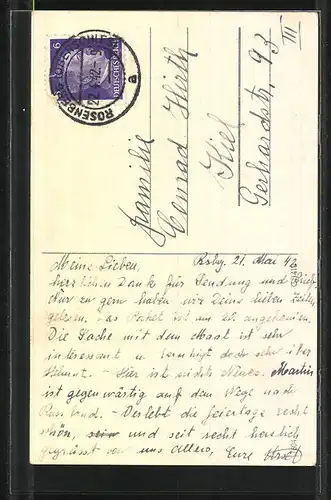 6
DEUTSCHES REICH
ROSENBERG
a
Familie
Conrad Hirth
Kiel
Gerhardstr. 93
III
Rsbg. 21. Mai 42
Meine Lieben,
herzlichen Dank für Sendung und Brief.
Nur zu gern haben wir Deine lieben Zeilen
gelesen. Das Paket ist am 20. angekommen.
Die Sache mit dem Maat ist sehr
interessant u. beruhigt doch sehr über
Helmut. - Hier ist nichts Neues. Martin
ist gegenwärtig auf dem Wege nach
Russland. - Verlebt die Feiertage recht
schön, und seit recht herzlich
gegrüsst von uns Allen, Eure